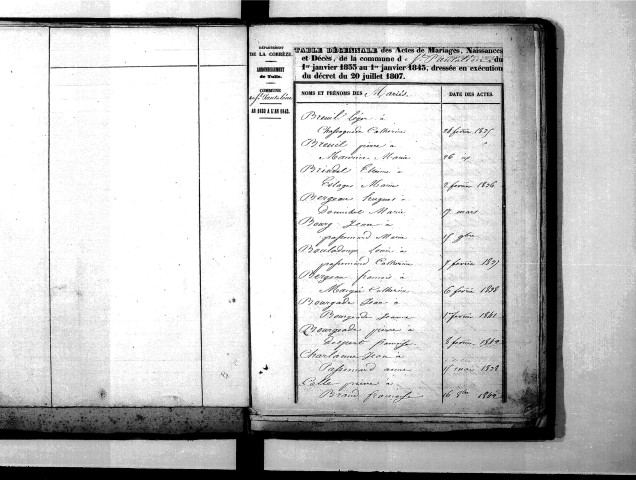 DÉPARTEMENT
DE LA CORRÈZE.
ARRONDISSEMENT
de Tulle.
COMMUNE
de St Pantaléon
AN 1833 A L'AN 1843.
TABLE DÉCENNALE des Actes de Mariages, Naissances
et Décès, de la commune de St Pantaléon du
1er janvier 1833 au 1er janvier 1843, dressée en exécution
du décret du 20 juillet 1807.
NOMS ET PRÉNOMS DES Mariés. DATE DES ACTES.
Breuil Léger à
Chassagnade Catherine 28 février 1835
Breuil pierre à "
Maurice Marie 26
Brindel Etienne à
Estager Marie 2 février 1836
Bergeau hugues à
Marie 17 mars
Bourg Jean à
passemard Marie 15 9bre
Louis à
passemard Catherine 7 février 1837
Bergeau françois à
Catherine 6 février 1838
Bourgade Jean à
Bourgeade Jeanne 17 février 1841
Bourgeade pierre à
françoise 8 février 1842
Charlanne Jean à
Passemard anne 15 mai 1838
Celle pierre à
Briand françoise 16 8bre 1842